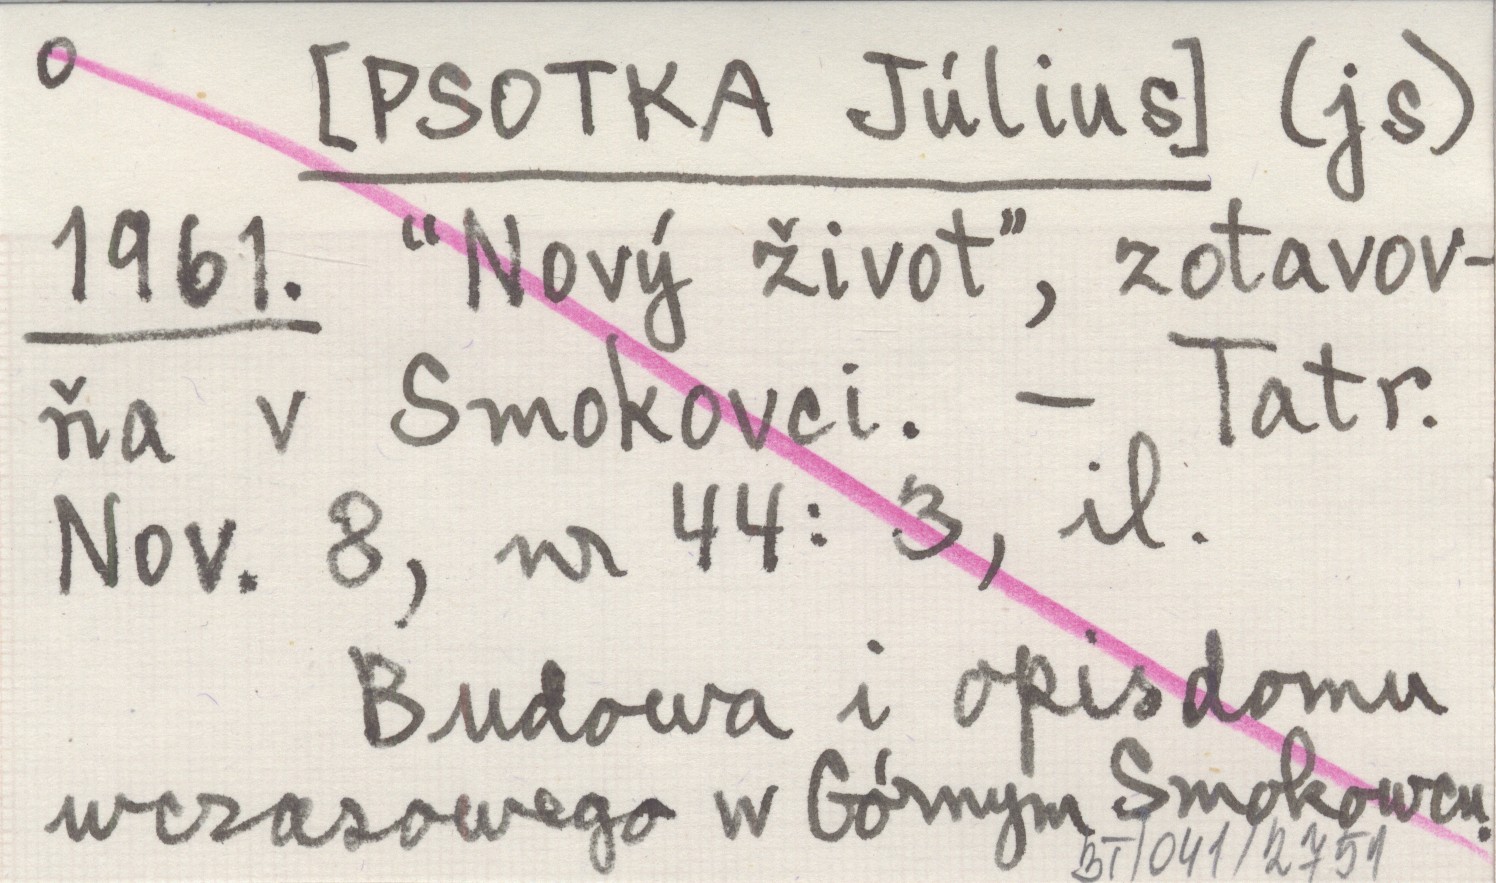 o [PSOTKA Július] (js)
1961. "Nový život", zotavov-
ňa v Smokovci. – Tatr.
Nov. 8, nr 44: 3, il.
Budowa i opis domu
wczasowego w Górnym Smokowcu.
BT/041/2751